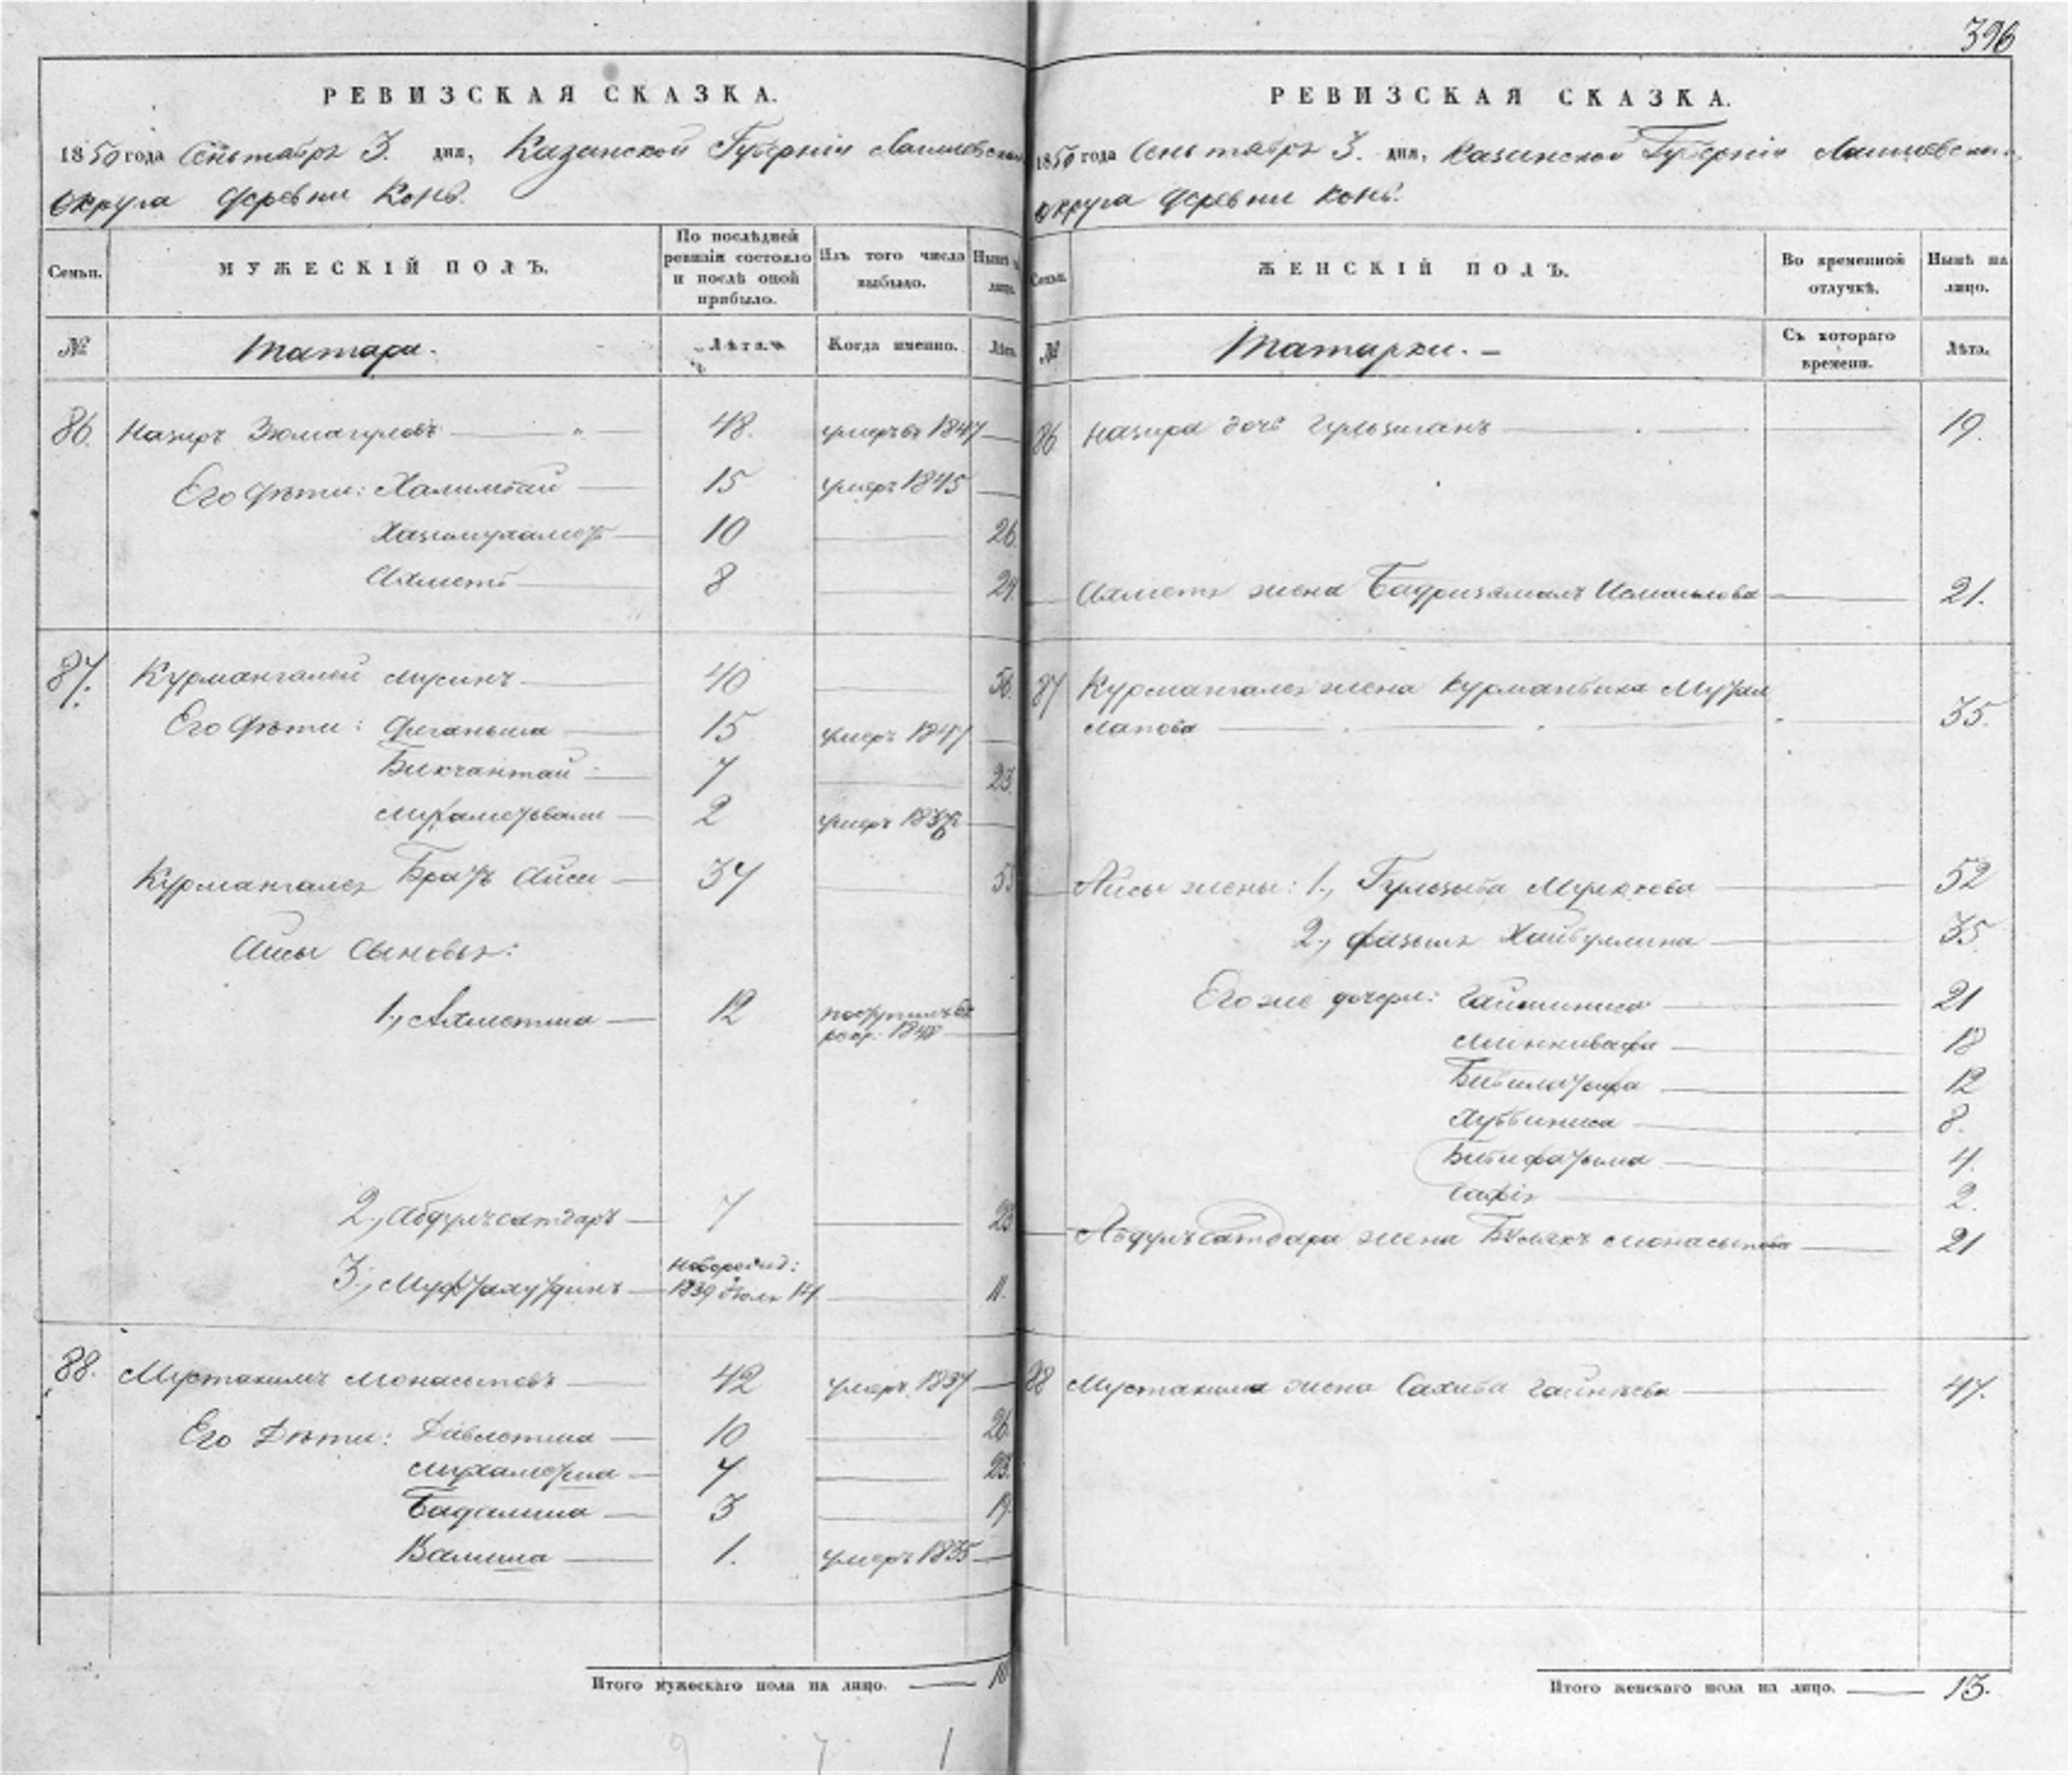 396
РЕВИЗСКАЯ СКАЗКА.
1850 года Сентября 3. дня, Казанской Губернии Лаишевского
округа деревни Конь.
Семьи. МУЖЕСКІЙ ПОЛЪ. По послѣдней ревизіи состояло и послѣ оной прибыло. Изъ того числа выбыло. Нынѣ на лицо.
№ Татара. Лѣта. Когда именно. Лѣта.
86. Назиръ Зюмагуловъ 48. умеръ въ 1847
Его дѣти: Халитбай 15 умеръ 1845
10 26.
Ахметъ 8 24.
87. Курмангалей Мусинъ 40 56.
Его дѣти: Диганьша 15 умеръ 1847
Бикчантай 7 23.
Мухаметвали 2 умеръ
Курмангалея Братъ Айса 37 53
Айсы Сыновья:
1., Ахметша 12 поступилъ въ
рекр. 1840
2., Абдулъсатдаръ 7 23
3., новорожд:
1839 Июля 14 11.
88. Мустакимъ Монасыповъ 42 умеръ 1837
Его Дѣти: Давлетша 10 26.
Мухаметша 7 23.
Бадалша 3 19.
Валиша 1. умеръ 1835
Итого мужескаго пола на лицо. 10
РЕВИЗСКАЯ СКАЗКА.
1850 года Сентября 3. дня, Казанской Губерніи Лаишевского
округа деревни Конь.
Семьи. ЖЕНСКІЙ ПОЛЪ. Во временной отлучкѣ. Нынѣ на лицо.
№ Татарки. Съ котораго времени. Лѣта.
86 Назира дочь 19.
Ахметя жена Бадризямалъ Исмаилова 21.
87 Курмангалея жена Курманбика
35.
Айсы жены: 1., Гульзыба 52
2., Фазыля Хайбуллина 35
Его же дочери: 21
Миннивафа 18
12
Хуббиниса 8.
Бибифатыма 4.
Сафія 2.
Абдулъсатдара жена Бѣлякъ Монасыпова 21
88 Мустакима жена Сахиба 47.
Итого женскаго пола на лицо. 13.